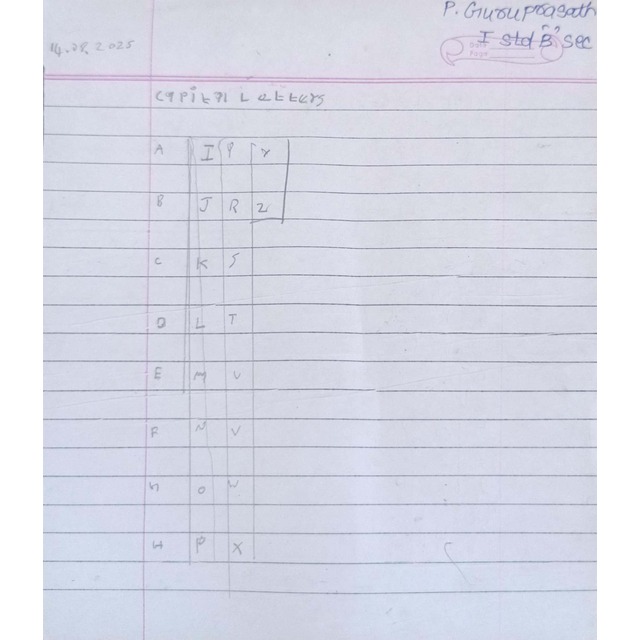 P. Guruprasath
I std 'B' sec
14.08.2025
Date
Page
CAPITAL LETTERS
A I Q Y
B J R Z
C K S
D L T
E M U
F N V
G O W
H P X